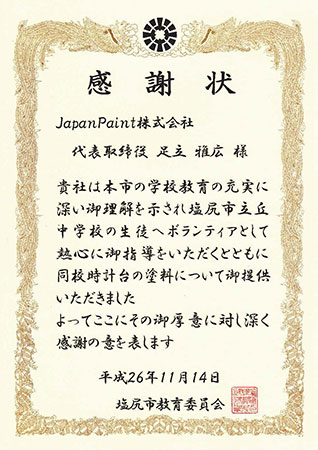 感謝状
JapanPaint株式会社
代表取締役 足立 雅広 様
貴社は本市の学校教育の充実に
深い御理解を示され塩尻市立丘
中学校の生徒へボランティアとして
熱心に御指導をいただくとともに
同校時計台の塗料について御提供
いただきました
よってここにその御厚意に対し深く
感謝の意を表します
平成26年11月14日
塩尻市教育委員会